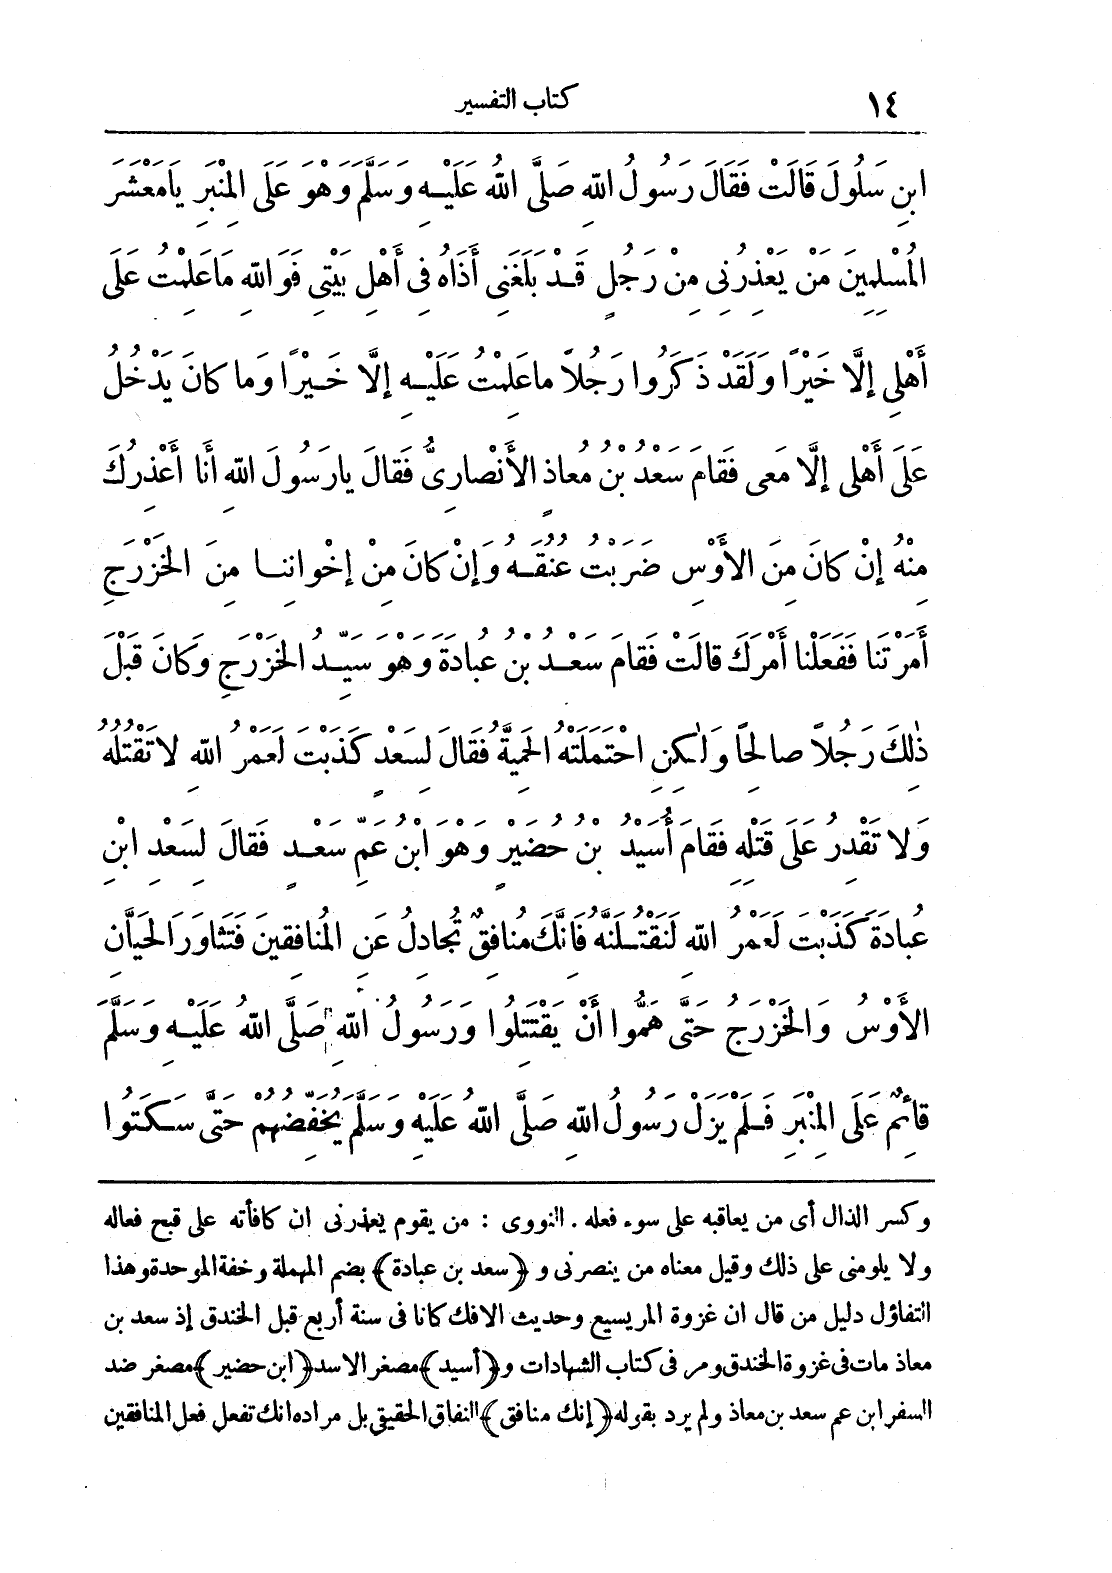 ١٤ كتاب التفسير
ابنِ سَلُولَ قَالَتْ فَقَالَ رَسُولُ اللهِ صَلَّى اللهُ عَلَيْهِ وَسَلَّمَ وَهْوَ عَلَى المِنْبَرِ يامَعْشَرَ
المُسْلِمِينَ مَنْ يَعْذِرُنِى مِنْ رَجُلٍ قَدْ بَلَغَنِى أَذَاهُ فِى أَهْلِ بَيْتِى فَوَاللهِ مَاعَلِمْتُ عَلَى
أَهْلِى إِلَّا خَيْرًا وَلَقَدْ ذَكَرُوا رَجُلًا ماعَلِمْتُ عَلَيْهِ إِلَّا خَيْرًا وَما كانَ يَدْخُلُ
عَلَى أَهْلِى إِلَّا مَعِى فَقامَ سَعْدُ بْنُ مُعاذٍ الأَنْصارِىُّ فَقالَ يارَسُولَ اللهِ أَنا أَعْذِرُكَ
مِنْهُ إِنْ كانَ مِنَ الأَوْسِ ضَرَبْتُ عُنُقَهُ وَإِنْ كانَ مِنْ إِخْوانِنا مِنَ الخَزْرَجِ
أَمَرْتَنا فَفَعَلْنا أَمْرَكَ قالَتْ فَقامَ سَعْدُ بْنُ عُبادَةَ وَهْوَ سَيِّدُ الخَزْرَجِ وَكانَ قَبْلَ
ذٰلِكَ رَجُلًا صالِحًا وَلٰكِنِ احْتَمَلَتْهُ الحَمِيَّةُ فَقالَ لِسَعْدٍ كَذَبْتَ لَعَمْرُ اللهِ لا تَقْتُلُهُ
وَلا تَقْدِرُ عَلَى قَتْلِهِ فَقامَ أُسَيْدُ بْنُ حُضَيْرٍ وَهْوَ ابْنُ عَمِّ سَعْدٍ فَقالَ لِسَعْدِ ابْنِ
عُبادَةَ كَذَبْتَ لَعَمْرُ اللهِ لَنَقْتُلَنَّهُ فَانَّكَ مُنافِقٌ تُجادِلُ عَنِ المُنافِقِينَ فَتَثاوَرَ الحَيَّانِ
الأَوْسُ وَالخَزْرَجُ حَتَّى هَمُّوا أَنْ يَقْتَتِلُوا وَرَسُولُ اللهِ صَلَّى اللهُ عَلَيْهِ وَسَلَّمَ
قائِمٌ عَلَى المِنْبَرِ فَلَمْ يَزَلْ رَسُولُ اللهِ صَلَّى اللهُ عَلَيْهِ وَسَلَّمَ يُخَفِّضُهُمْ حَتَّى سَكَتُوا
وكسر الذال أى من يعاقبه على سوء فعله . النووى : من يقوم يعذرنى ان كافأته على قبح فعاله
ولا يلومنى على ذلك وقيل معناه من ينصرنى و ﴿سعد بن عبادة﴾ بضم المهملة وخفة الموحدة وهذا
التفاؤل دليل من قال ان غزوة المريسيع وحديث الافك كانا فى سنة أربع قبل الخندق إذ سعد بن
معاذ مات فى غزوة الخندق ومر فى كتاب الشهادات و﴿أسيد﴾ مصغر الاسد ﴿ابن حضير﴾ مصغر ضد
السفر ابن عم سعد بن معاذ ولم يرد بقوله ﴿إنك منافق﴾ النفاق الحقيقى بل مراده انك تفعل فعل المنافقين